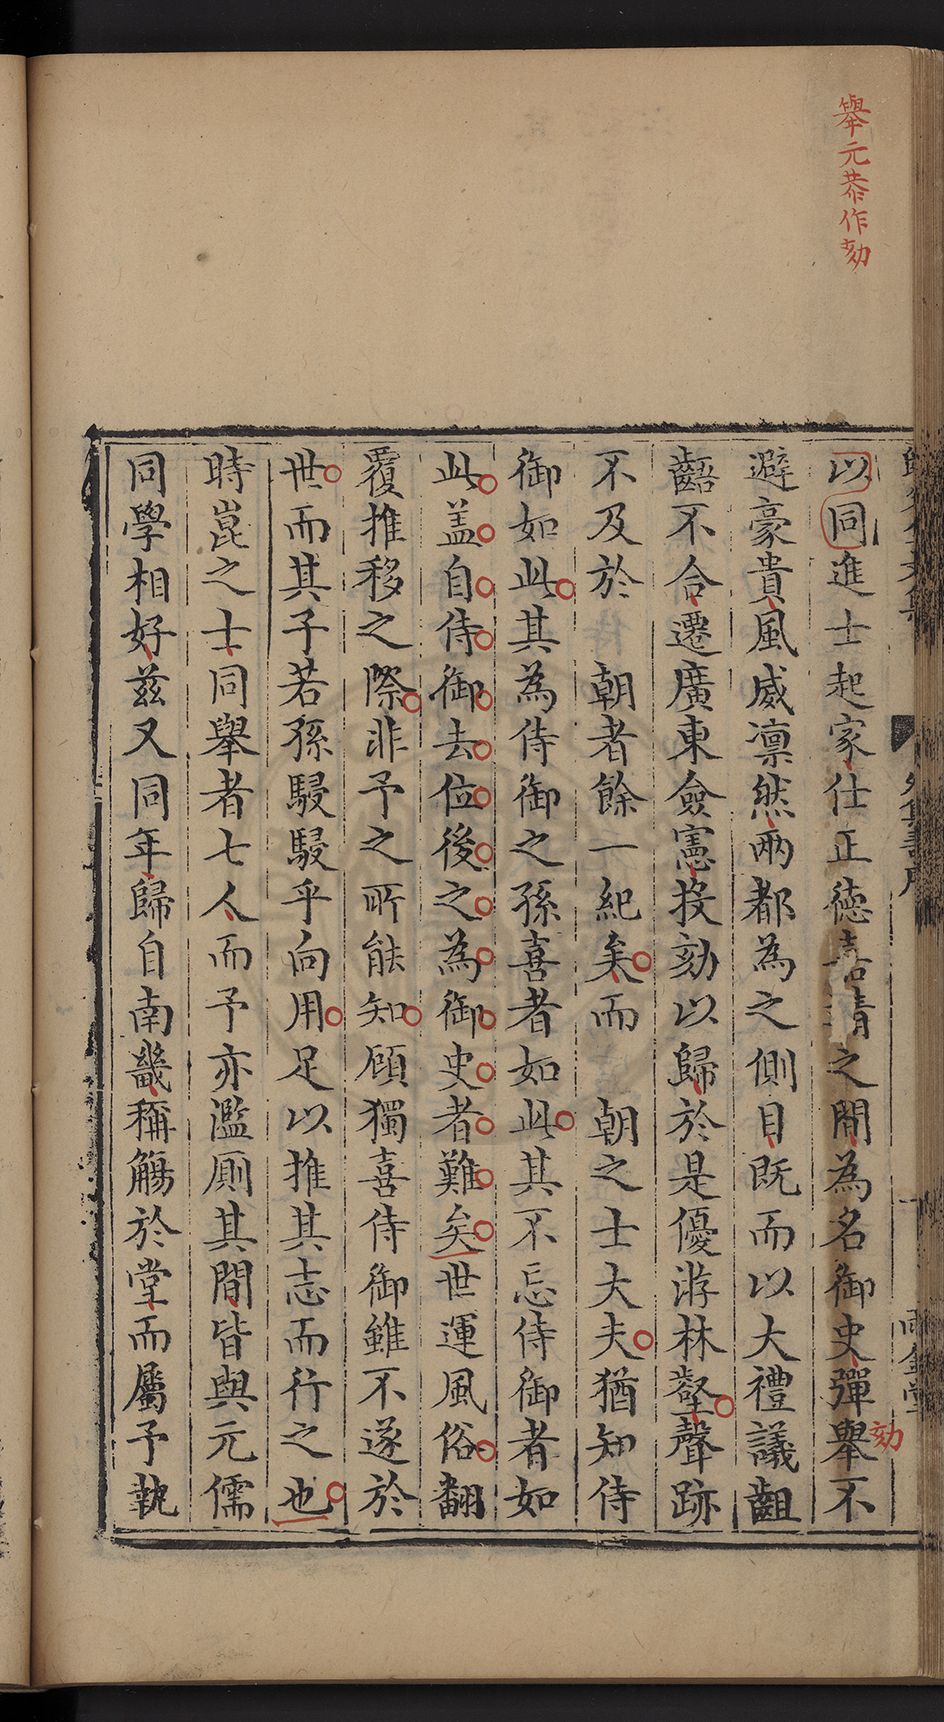 舉元恭作劾
以同進士起家仕正德嘉靖之間為名御史彈舉不
劾
避豪貴風威凛然兩都為之側目既而以大禮議齟
齬不合遷廣東僉憲投劾以歸於是優游林壑聲跡
不及於　朝者餘一紀矣而　朝之士大夫猶知侍
御如此其為侍御之孫喜者如此其不忘侍御者如
此盖自侍御去位後之為御史者難矣世運風俗翻
覆推移之際非予之所能知顧獨喜侍御雖不遂於
世而其子若孫駸駸乎向用足以推其志而行之也
時崑之士同舉者七人而予亦濫厠其間皆與元儒
同學相好兹又同年歸自南畿稱觴於堂而屬予執